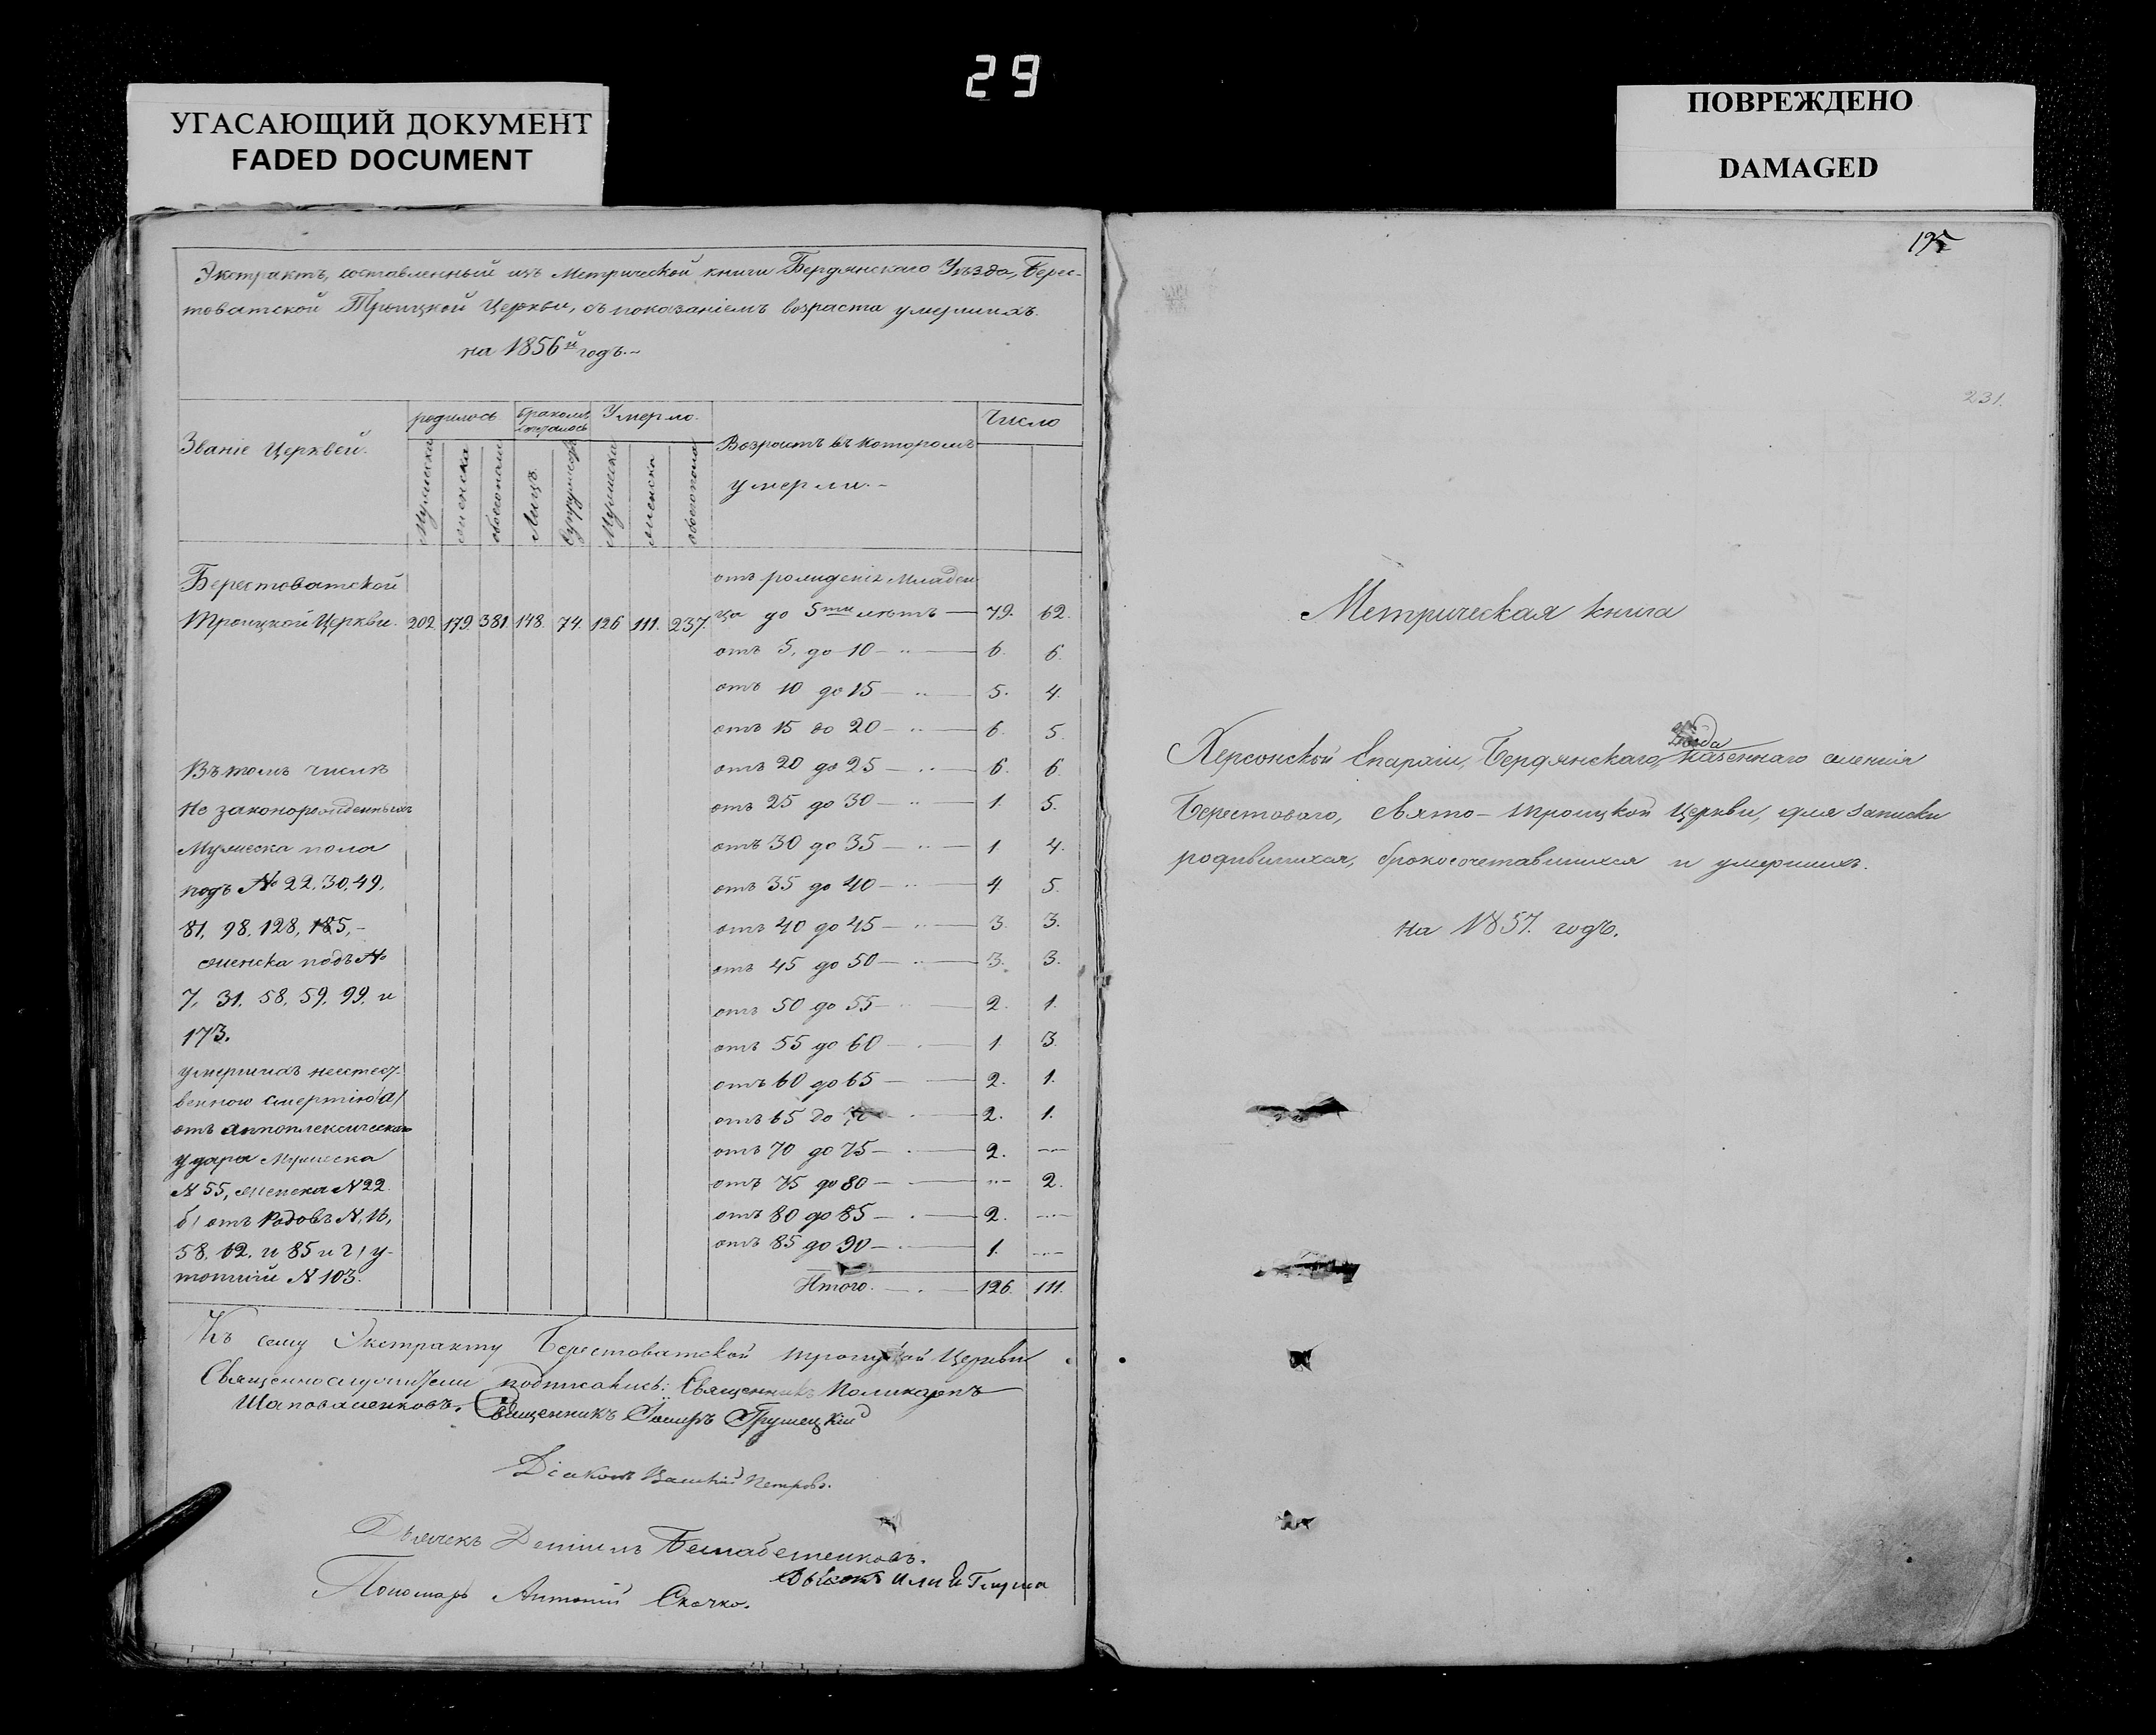 29
УГАСАЮЩИЙ ДОКУМЕНТ
FADED DOCUMENT
ПОВРЕЖДЕНО
DAMAGED
Экстрактъ, составленный изъ Метрической книги Бердянскаго Уѣзда, Берес-
товатской Троицкой Церкви, съ показаніемъ возраста умершихъ.
на 1856й годъ.
Званіе Церквей.
родилось
бракомъ
Умерло.
Возрастъ въ которомъ
умерли.
Число
Мужеска
женска
обоего пола
Лицъ
Супружествъ
Мужеска
женска
обоего пола
Берестоватской
Троицкой Церкви. 202. 179. 381. 148. 74. 126 111. 237.
отъ рожденія Младен-
ца до 5ти лѣтъ — 79. 62.
отъ 5, до 10 — 6. 6.
отъ 10 до 15 — 5. 4.
отъ 15 до 20 — 6. 5.
отъ 20 до 25 — 6. 6.
отъ 25 до 30 — 1. 5.
отъ 30 до 35 — 1. 4.
отъ 35 до 40 — 4. 5.
отъ 40 до 45 — 3. 3.
отъ 45 до 50 — 3. 3.
отъ 50 до 55 — 2. 1.
отъ 55 до 60 — 1. 3.
отъ 60 до 65 — 2. 1.
отъ 65 до — 2. 1.
отъ 70 до 75 — 2. —
отъ 75 до 80 — — 2.
отъ 80 до 85 — 2. —
отъ 85 до 90 — 1. —
Итого. — 126. 111.
Въ томъ числѣ
не законорожденныхъ
Мужеска пола
подъ № 22, 30, 49,
81, 98, 128, 185,-
женска подъ №
7, 31, 58, 59, 99, и
173.
умершихъ неестест-
венною смертію а)
отъ аппоплексическаго
удара Мужеска
N 55, женска N 22.
б) отъ Родовъ N, 16,
58, 62, и 85 и г) у-
топшій N 103.
Къ сему Экстракту Берестоватской Троицкой Церкви
Священнослужители подписались: Священникъ Поликарпъ
Шаповаленковъ. Священникъ Грушецкій
Діаконъ Петровъ.
Дьячекъ
Пономарь Антоній Скачко.
195
231.
Метрическая книга
Херсонской Епархіи, Бердянскаго уѣзда казеннаго селенія
Берестоваго, Свято-Троицкой Церкви, для записки
родившихся, бракосочетавшихся и умершихъ.
на 1857. годъ.